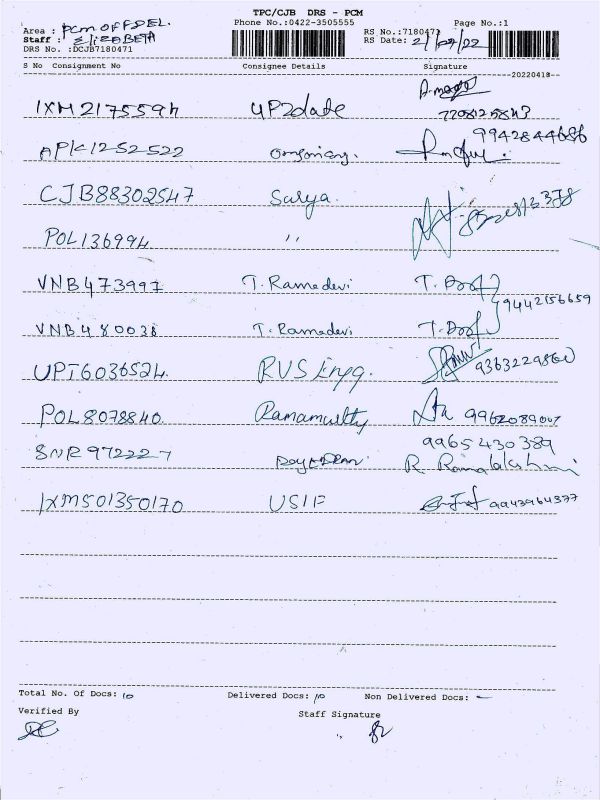 TPC/CJB DRS - PCM
Phone No.:0422-3505555 Page No.:1
Area : PCM OFFDEL.
Staff : ElizABETA
DRS No. :DCJB7180471
RS No.:7180471
RS Date: 2/ /22
S No Consignment No Consignee Details Signature
20220418
IXM217559 UP2date
9942844686
APK1252522
CJB88302547 Surya
POL136994 "
VNB473997 T. Ramadevi T.
9442156659
VNB480038 T. Ramadevi T.
UPI6036524 RVS Engg. 9363229860
POL8078840 Ramamurthy
9965430389
SNR972227 R. Ramalakshmi
IXM501350170 USIF 9943964377
Total No. Of Docs: 10 Delivered Docs: 10 Non Delivered Docs: -
Verified By Staff Signature